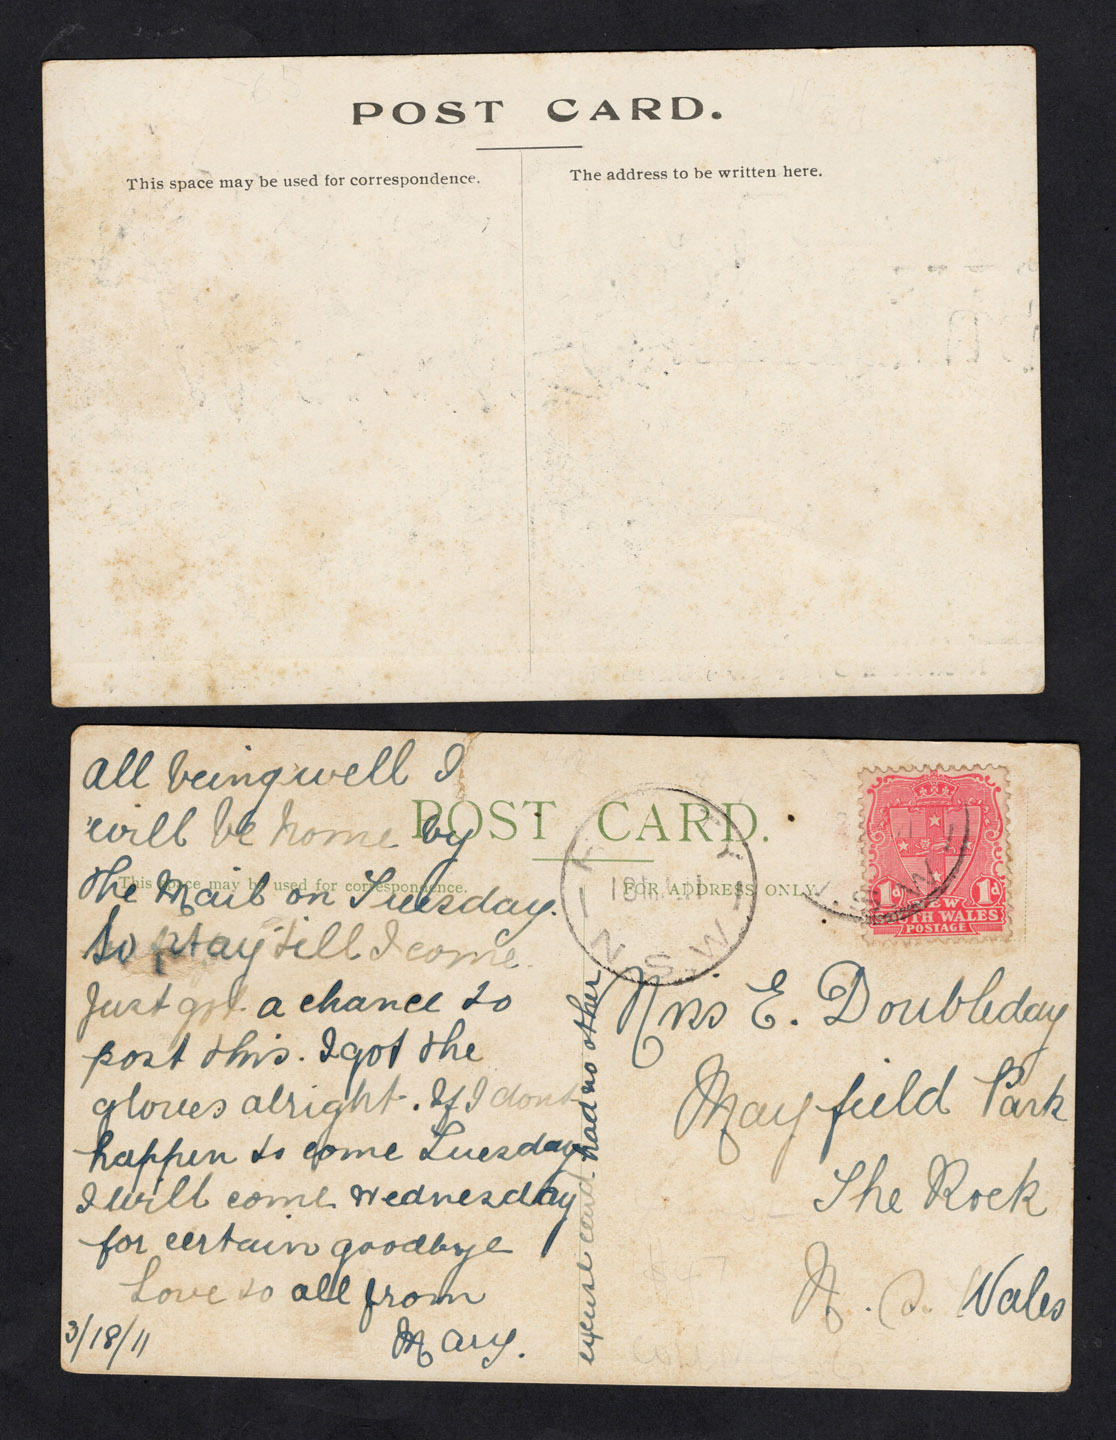 POST CARD.
This space may be used for correspondence.
The address to be written here.
POST CARD.
This space may be used for correspondence.
FOR ADDRESS ONLY
all being well I
will be home by
the Mail on Tuesday.
So stay till I come.
Just got a chance to
post this. I got the
gloves alright. If I dont
happen to come Tuesday
I will come Wednesday
for certain goodbye
Love to all from
Mary.
3/18/11
excuse card had no other
N S W
1d NEW 1d
TH WALES
POSTAGE
Mrs E. Doubleday
Mayfield Park
The Rock
N. S. Wales